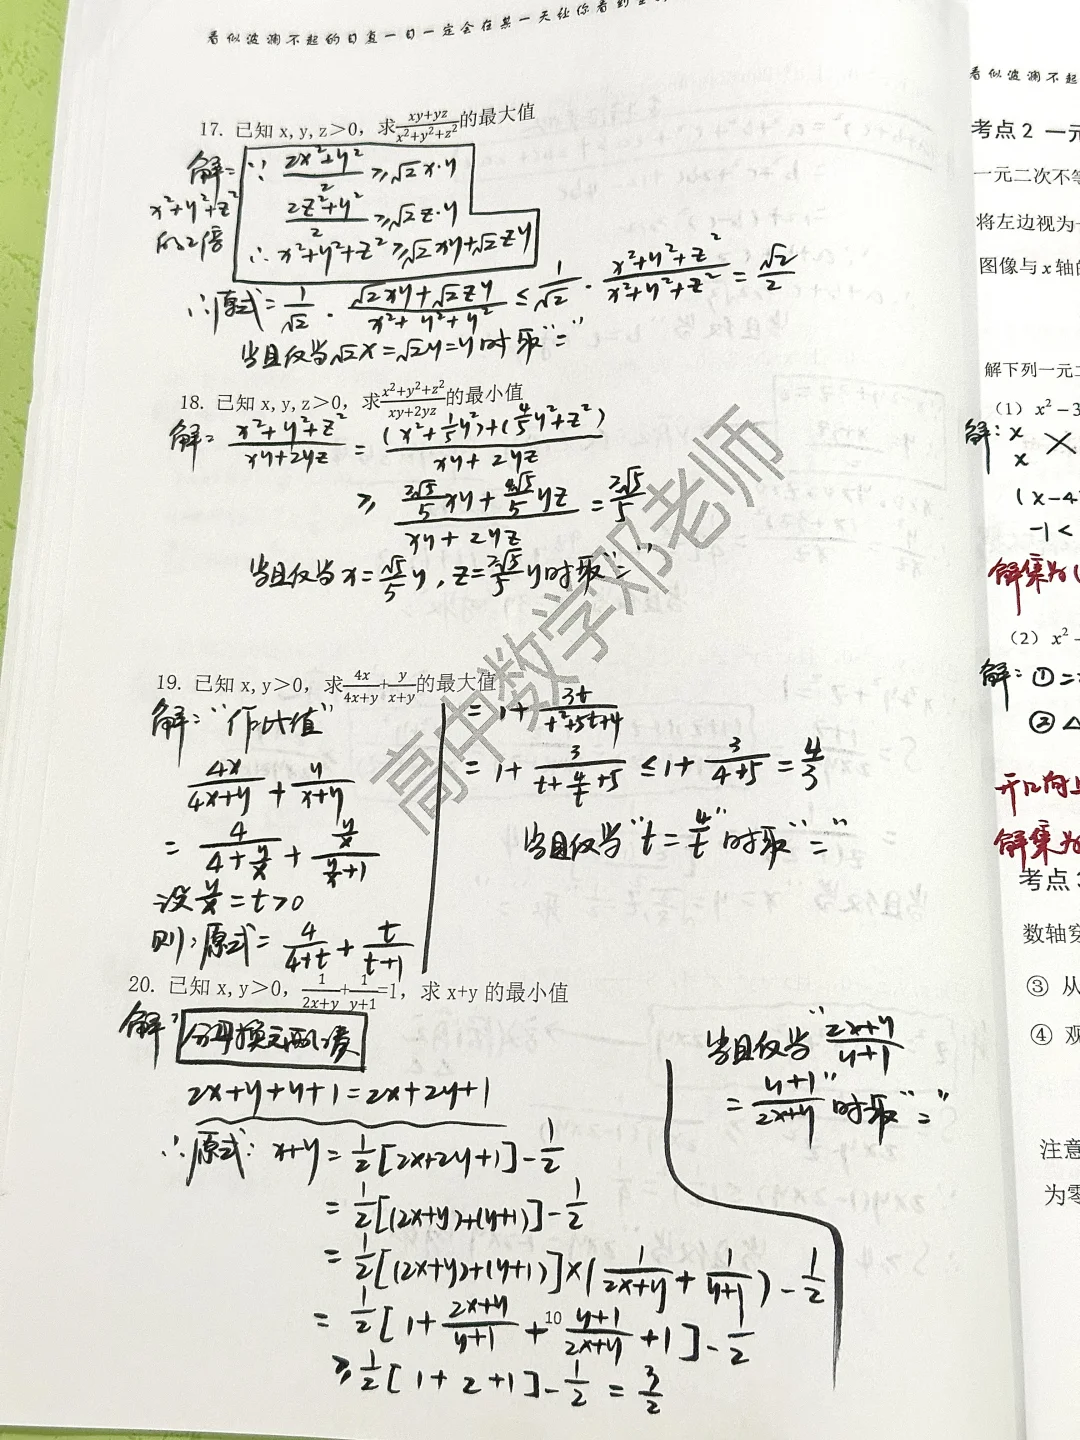 看似波澜不起的日复一日一定会在某一天让你看到
17. 已知 x,y,z＞0，求\frac{xy+yz}{x²+y²+z²}的最大值
解: ∵ \frac{2x²+y²}{2} ≥ √2x·y
x²+y²+z² \frac{2z²+y²}{2} ≥ √2z·y
的2倍 ∴ x²+y²+z² ≥ √2xy+√2zy
∴原式 = \frac{1}{√2} · \frac{√2xy+√2zy}{x²+y²+y²} ≤ \frac{1}{√2} · \frac{x²+y²+z²}{x²+y²+z²} = \frac{√2}{2}
当且仅当√2x=√2y=y时取"="
18. 已知 x,y,z＞0，求\frac{x²+y²+z²}{xy+2yz}的最小值
解: \frac{x²+y²+z²}{xy+2yz} = \frac{(x²+\frac{1}{5}y²)+(\frac{4}{5}y²+z²)}{xy+2yz}
≥ \frac{\frac{2√5}{5}xy+\frac{4√5}{5}yz}{xy+2yz} = \frac{2√5}{5}
当且仅当 x=\frac{√5}{5}y, z=\frac{2√5}{5}y时取"="
19. 已知 x,y＞0，求\frac{4x}{4x+y}+\frac{y}{x+y}的最大值
解: "作比值"
\frac{4x}{4x+y} + \frac{y}{x+y}
= \frac{4}{4+\frac{y}{x}} + \frac{\frac{y}{x}}{\frac{y}{x}+1}
设\frac{y}{x}=t>0
则:原式= \frac{4}{4+t} + \frac{t}{t+1}
= 1+\frac{3t}{t²+5t+4}
= 1+\frac{3}{t+\frac{4}{t}+5} ≤ 1+\frac{3}{4+5} = \frac{4}{3}
当且仅当"t=\frac{4}{t}"时取"="
20. 已知 x,y＞0，\frac{1}{2x+y}+\frac{1}{y+1}=1，求 x+y 的最小值
解: 分母换元配凑
2x+y+y+1=2x+2y+1
∴原式: x+y=\frac{1}{2}[2x+2y+1]-\frac{1}{2}
=\frac{1}{2}[(2x+y)+(y+1)]-\frac{1}{2}
=\frac{1}{2}[(2x+y)+(y+1)]×(\frac{1}{2x+y}+\frac{1}{y+1})-\frac{1}{2}
=\frac{1}{2}[1+\frac{2x+y}{y+1}+\frac{y+1}{2x+y}+1]-\frac{1}{2}
≥\frac{1}{2}[1+2+1]-\frac{1}{2}=\frac{3}{2}
当且仅当"\frac{2x+y}{y+1}
=\frac{y+1}{2x+y}"时取"="
10
高中数学邓老师
看似波澜不起
考点 2 一元
一元二次不等
将左边视为一
图像与 x 轴的
解下列一元二
（1）x²−3
解: x
x
(x-4
-1<
解集为(
（2）x²−
解: ①=
②△
开口向上
解集为
考点 3
数轴穿
③ 从
④ 观
注意
为零